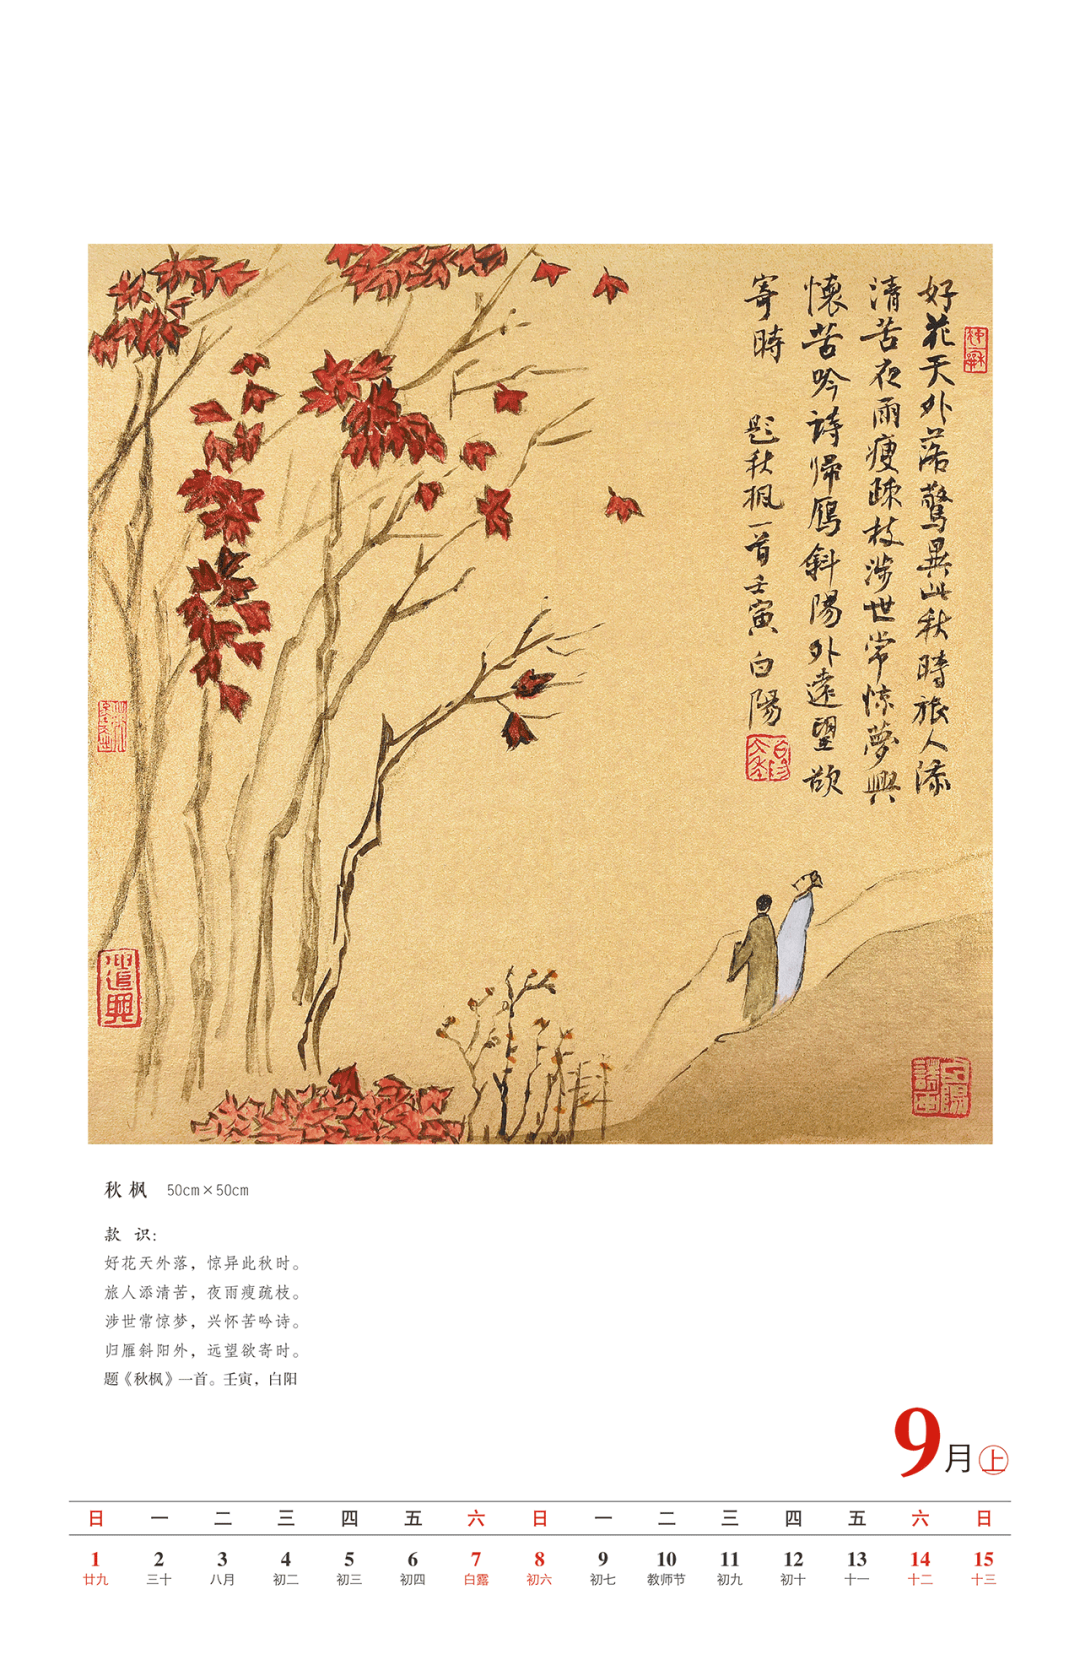 好花天外落驚異此秋時旅人添
清苦夜雨瘦疎枝涉世常惊夢興
懷苦吟詩帰鴈斜陽外遠望欲
寄時 题秋楓一首壬寅白陽
秋枫 50cm×50cm
款 识:
好花天外落，惊异此秋时。
旅人添清苦，夜雨瘦疏枝。
涉世常惊梦，兴怀苦吟诗。
归雁斜阳外，远望欲寄时。
题《秋枫》一首。壬寅，白阳
9月上
日 一 二 三 四 五 六 日 一 二 三 四 五 六 日
1 2 3 4 5 6 7 8 9 10 11 12 13 14 15
廿九 三十 八月 初二 初三 初四 白露 初六 初七 教师节 初九 初十 十一 十二 十三